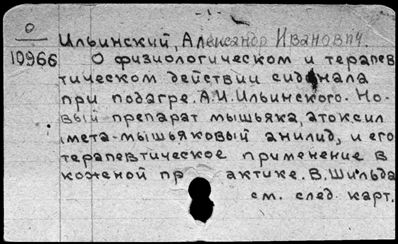 О
10966
Ильинский, Александр Иванович.
О физиологическом и терапев
тическом действии сидонала
при подагре. А.И.Ильинского. Но-
вый препарат мышьяка, атоксил
(мета-мышьяковый анилид, и его
терапевтическое применение в
кожной практике. В.Шильда
см. след. карт.